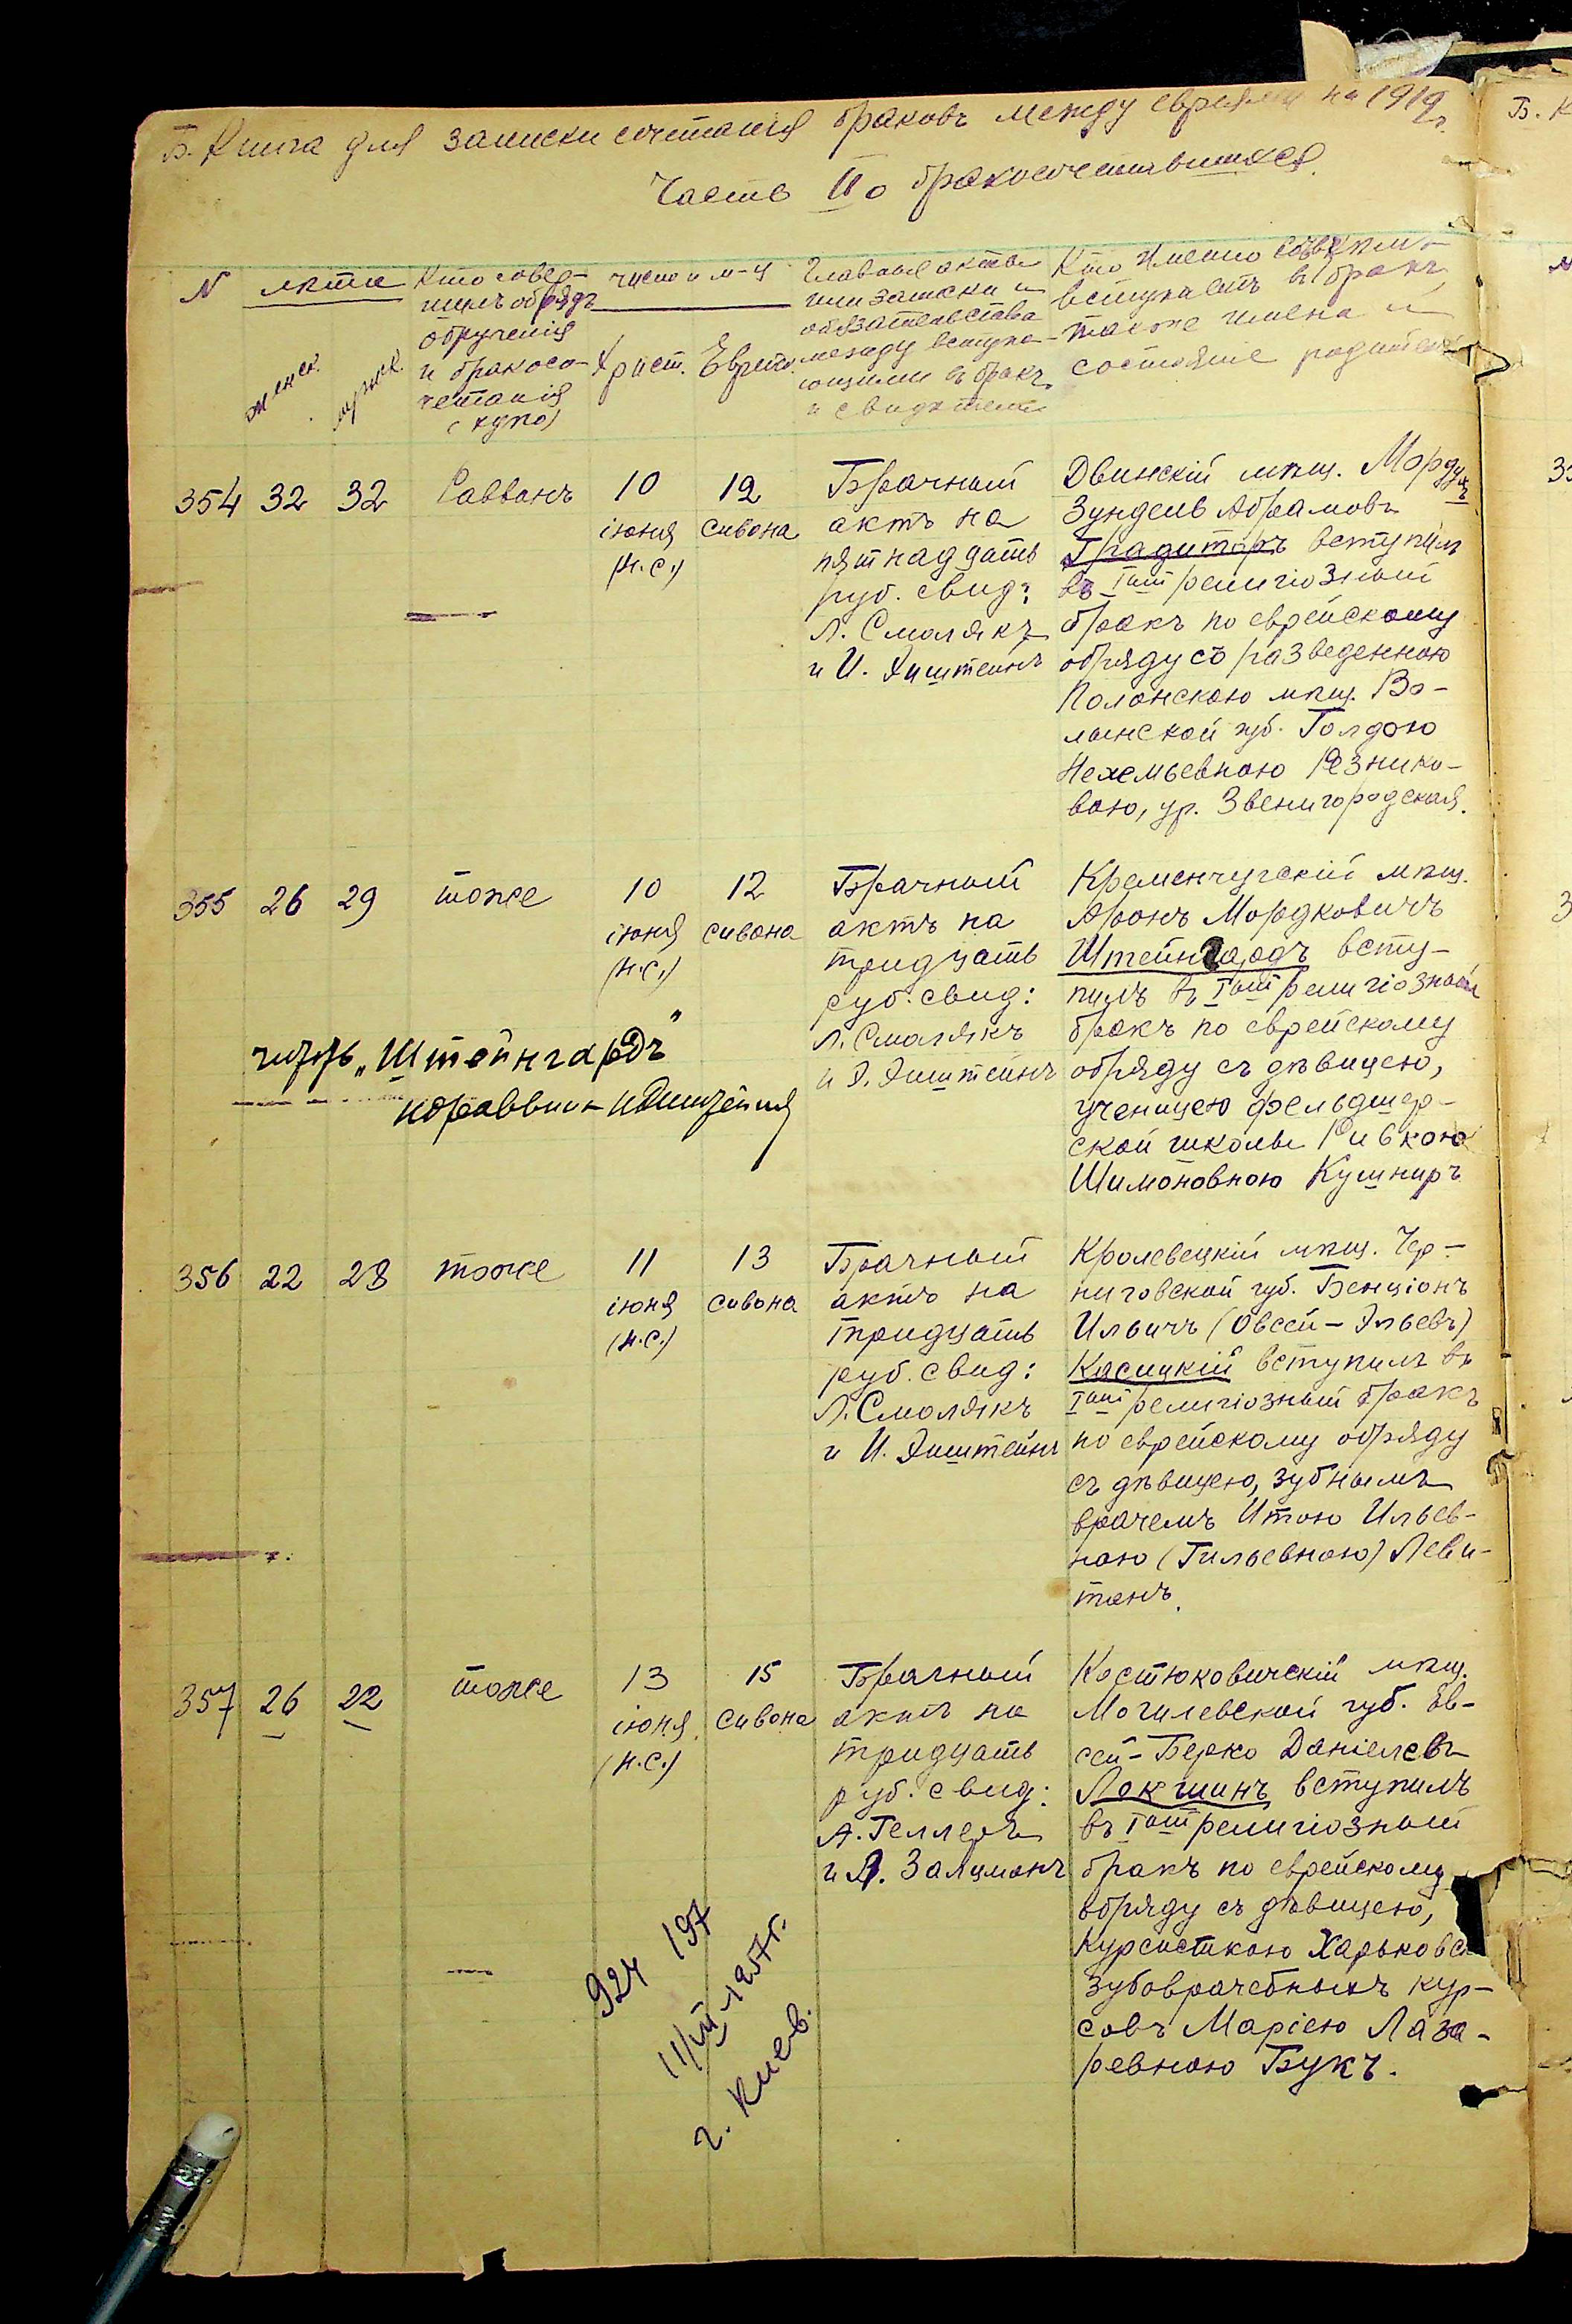 Б. Книга для записки сочетанія браковъ между евреями на 1919 г.
Часть II о бракосочетавшихся.
N
лѣта
женск.
мужск.
Кто совер-
шилъ обрядъ
обрученія
и бракосо-
четанія
(хупо)
число и м-ц
Христ.
Еврейс.
Главные акты
или записки и
обязательства
между вступа-
ющими въ бракъ
и свидѣтели
Кто именно
вступаетъ въ бракъ,
также имена и
состояніе родителей
354 32 32
Раввинъ
10
іюня
(н.с.)
12
сивона
Брачный
актъ на
пятнадцать
руб. свид:
Л. Смолякъ
и И. Эпштейнъ
Двинскій мѣщ. Мордухъ
Зундель Абрамовъ
Традиторъ вступилъ
въ Iый религіозный
бракъ по еврейскому
обряду съ разведенною
Полонскою мѣщ. Во-
лынской губ. Голдою
Нехемьевною Резнико-
вою, ур. Звенигородская.
355 26 29
тоже
10
іюня
(н.с.)
12
сивона
Брачный
актъ на
тридцать
руб. свид:
Л. Смолякъ
и Э. Эпштейнъ
Кременчугскій мѣщ.
Аронъ Мордковичъ
Штейнгардъ всту-
пилъ въ Iый религіозный
бракъ по еврейскому
обряду съ дѣвицею,
ученицею фельдшер-
ской школы Ривкою
Шимоновною Кушниръ
"Штейнгардъ"
356 22 28
тоже
11
іюня
(н.с.)
13
сивона
Брачный
актъ на
тридцать
руб. свид:
Л. Смолякъ
и И. Эпштейнъ
Кролевецкій мѣщ. Чер-
ниговской губ. Бенціонъ
Ильичъ (Овсей-Эльевъ)
Касицкій вступилъ въ
Iый религіозный бракъ
по еврейскому обряду
съ дѣвицею, зубнымъ
врачемъ Итою Ильев-
ною (Гильевною) Леви-
танъ.
357 26 22
тоже
13
іюня
(н.с.)
15
сивона
Брачный
актъ на
тридцать
руб. свид:
А. Геллеръ
и Я. Залцманъ
Костюковичскій мѣщ.
Могилевской губ. Ев-
сей-Берко Даніелевъ
Локшинъ вступилъ
въ Iый религіозный
бракъ по еврейскому
обряду съ дѣвицею,
курсисткою Харьковс
зубоврачебныхъ кур-
совъ Маріею Лаза-
ревною Букъ.
924 197
11/VII-1957г.
г. Киев.